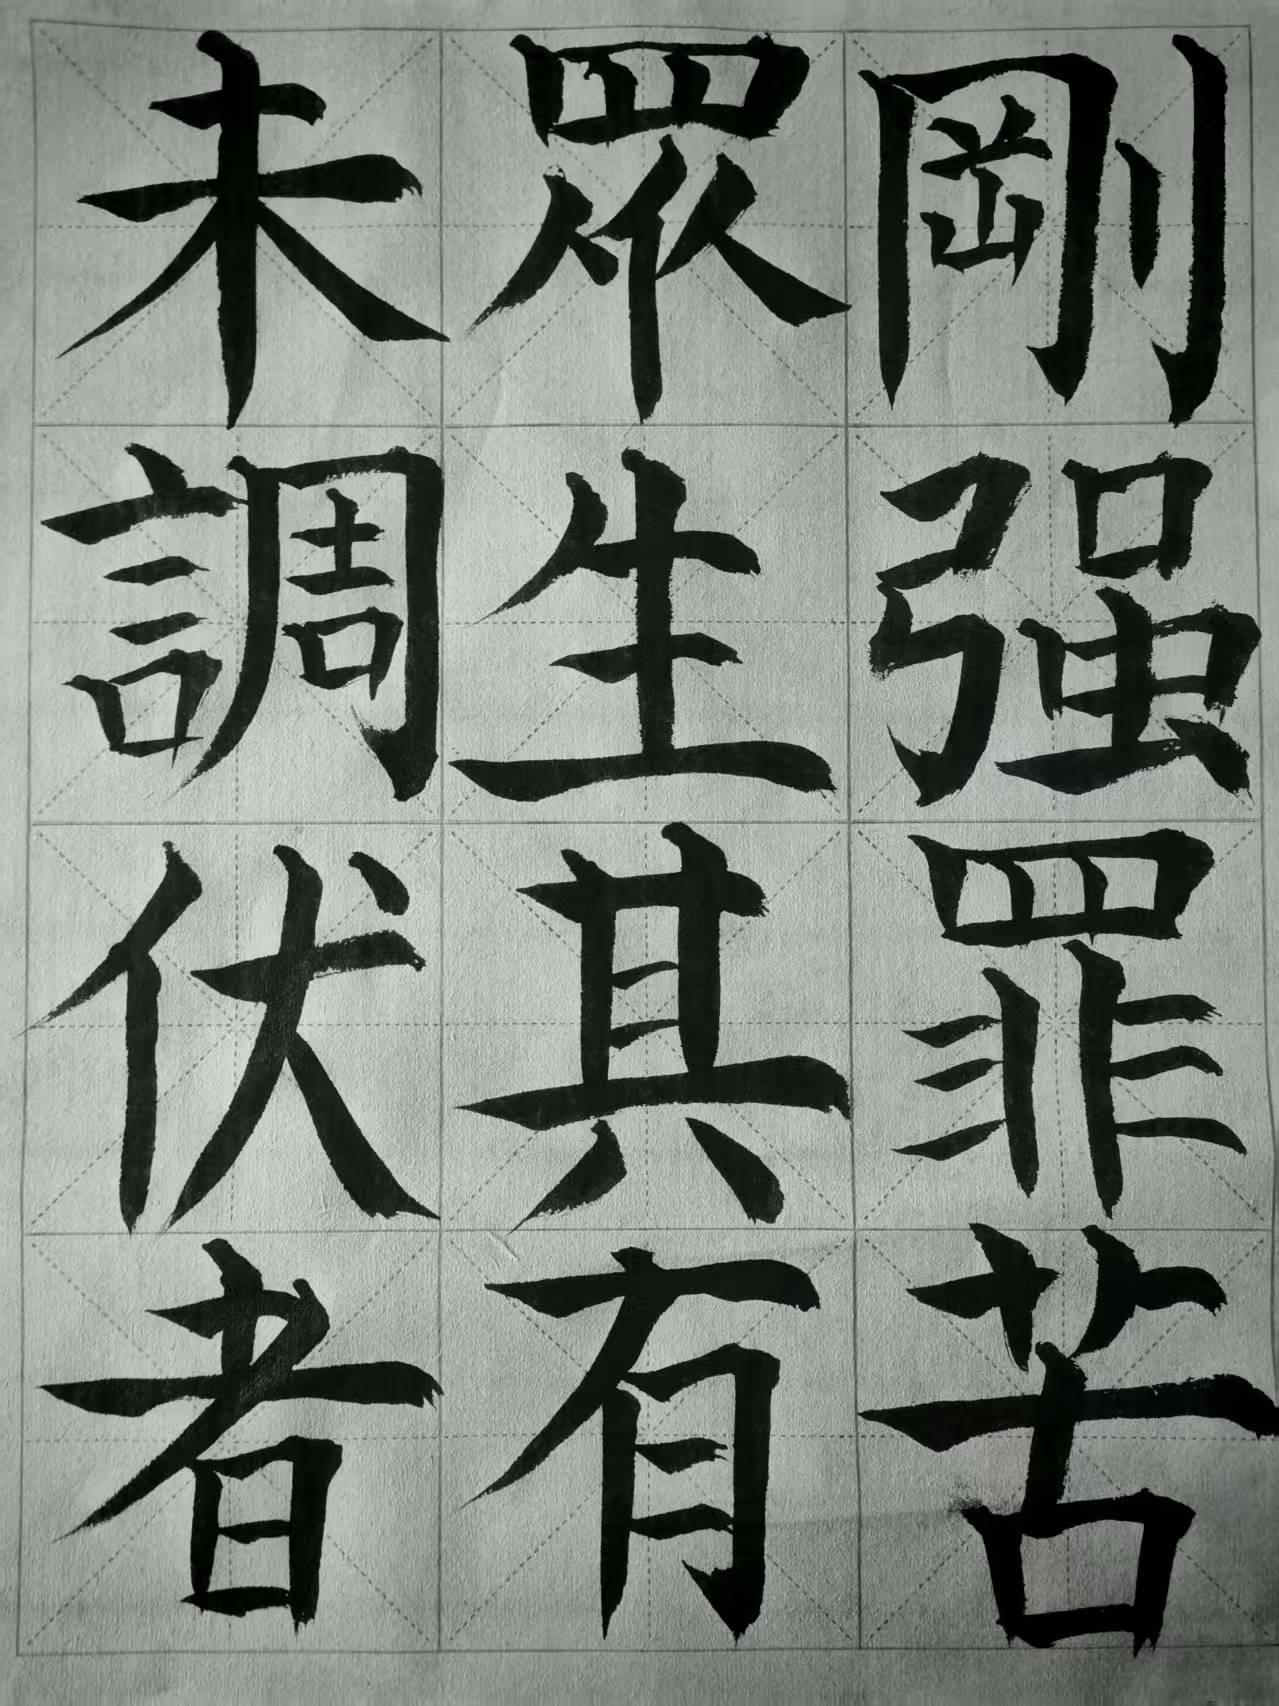 剛强罪苦
眾生其有
未調伏者